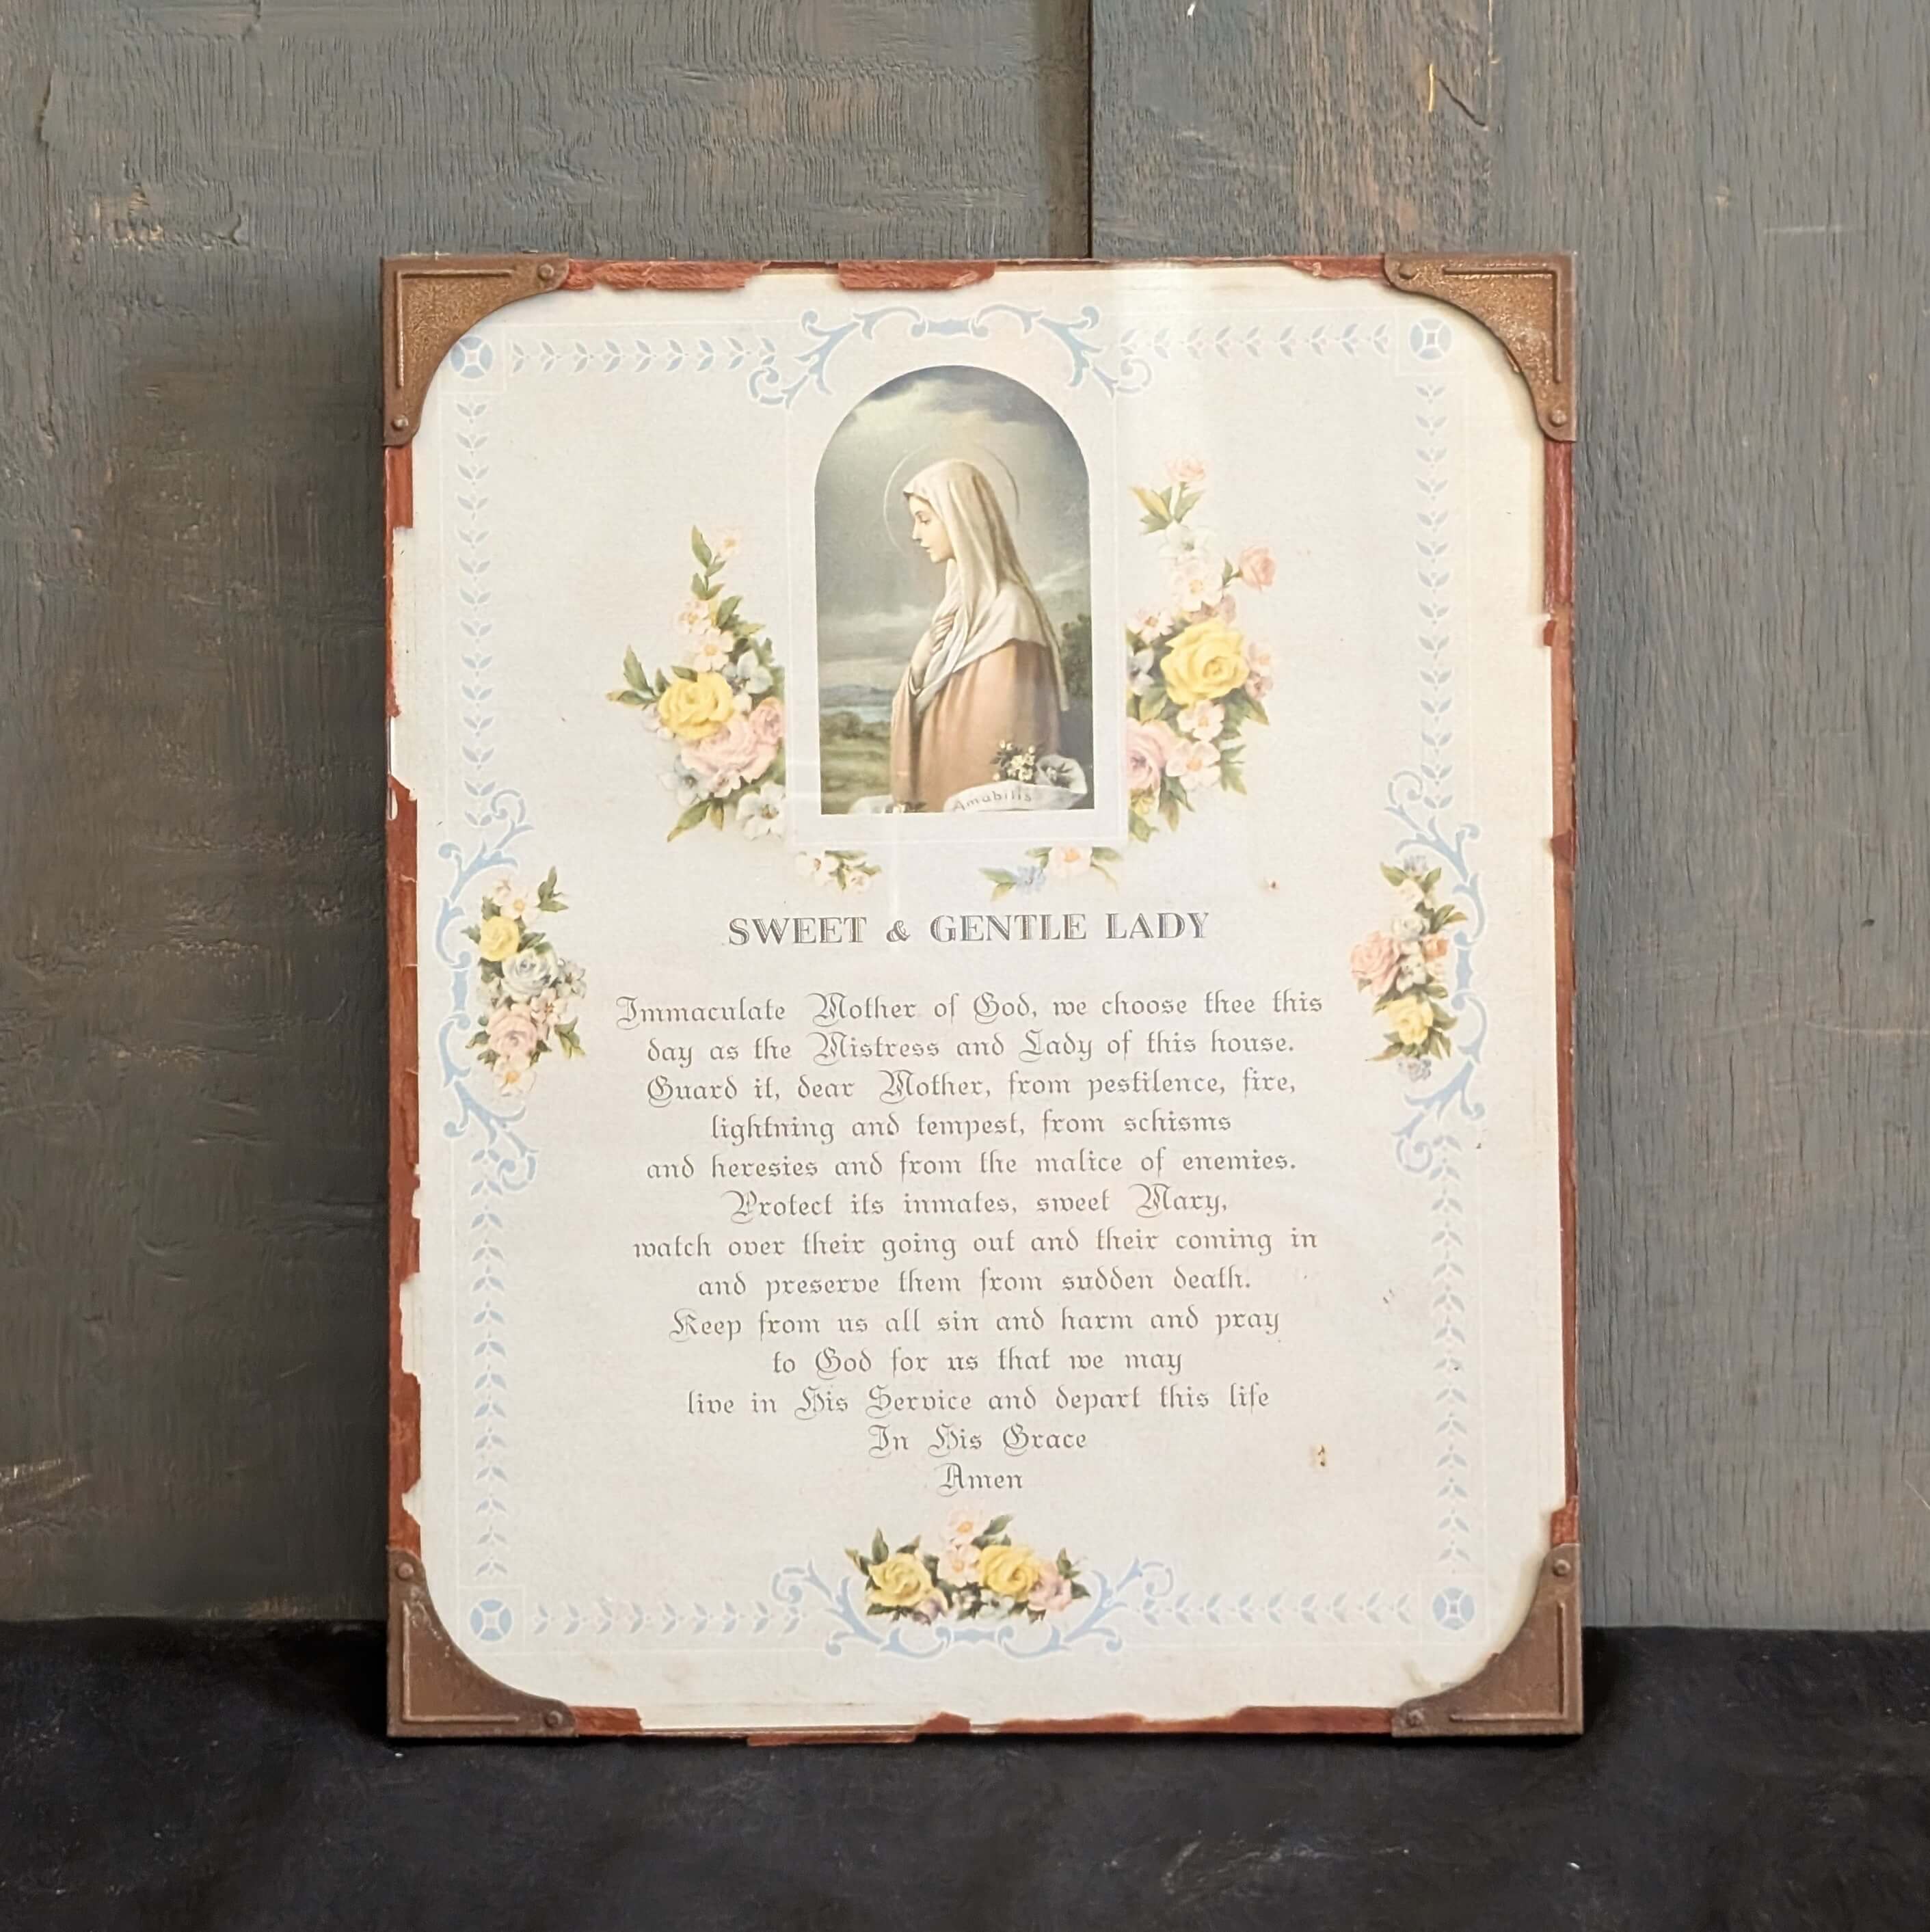 Amabilis
SWEET & GENTLE LADY
Immaculate Mother of God, we choose thee this
day as the Mistress and Lady of this house.
Guard it, dear Mother, from pestilence, fire,
lightning and tempest, from schisms
and heresies and from the malice of enemies.
Protect its inmates, sweet Mary,
watch over their going out and their coming in
and preserve them from sudden death.
Keep from us all sin and harm and pray
to God for us that we may
live in His Service and depart this life
In His Grace
Amen